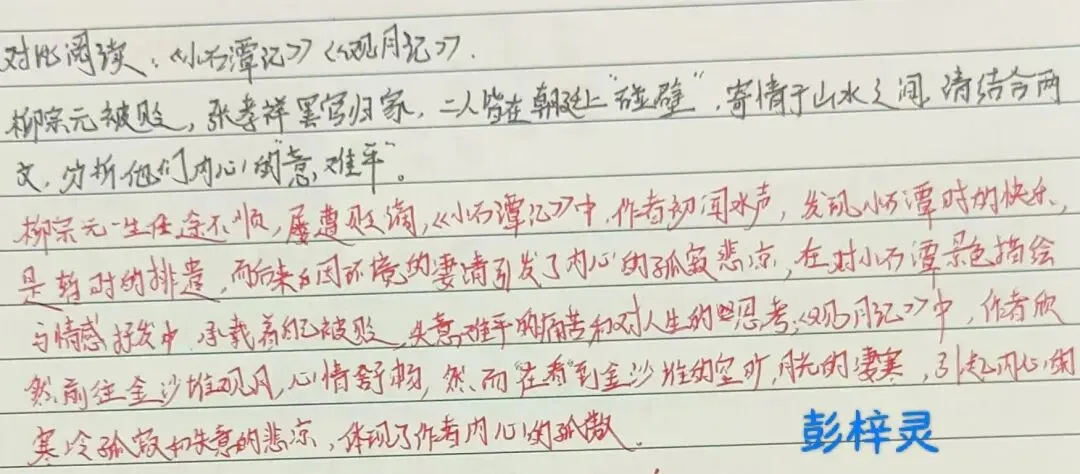 对比阅读：《小石潭记》《观月记》.
柳宗元被贬，张孝祥罢官归家，二人皆在朝廷上"碰壁"，寄情于山水之间，请结合两
文，分析他们内心的"意难平"。
柳宗元一生仕途不顺，屡遭贬谪，《小石潭记》中，作者初闻水声，发现小石潭时的快乐，
是暂时的排遣，而后来因环境的凄清引发了内心的孤寂悲凉，在对小石潭景色描绘
与情感抒发中，承载着自己被贬，失意难平的痛苦和对人生的思考，《观月记》中，作者欣
然前往金沙堆观月，心情舒畅，然而"在看"到金沙堆的空旷，月光的凄寒，引起内心的
寒冷孤寂和失意的悲凉，体现了作者内心的孤傲。
彭梓灵